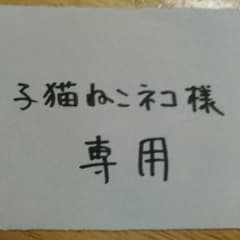 子猫ねこネコ様
専用